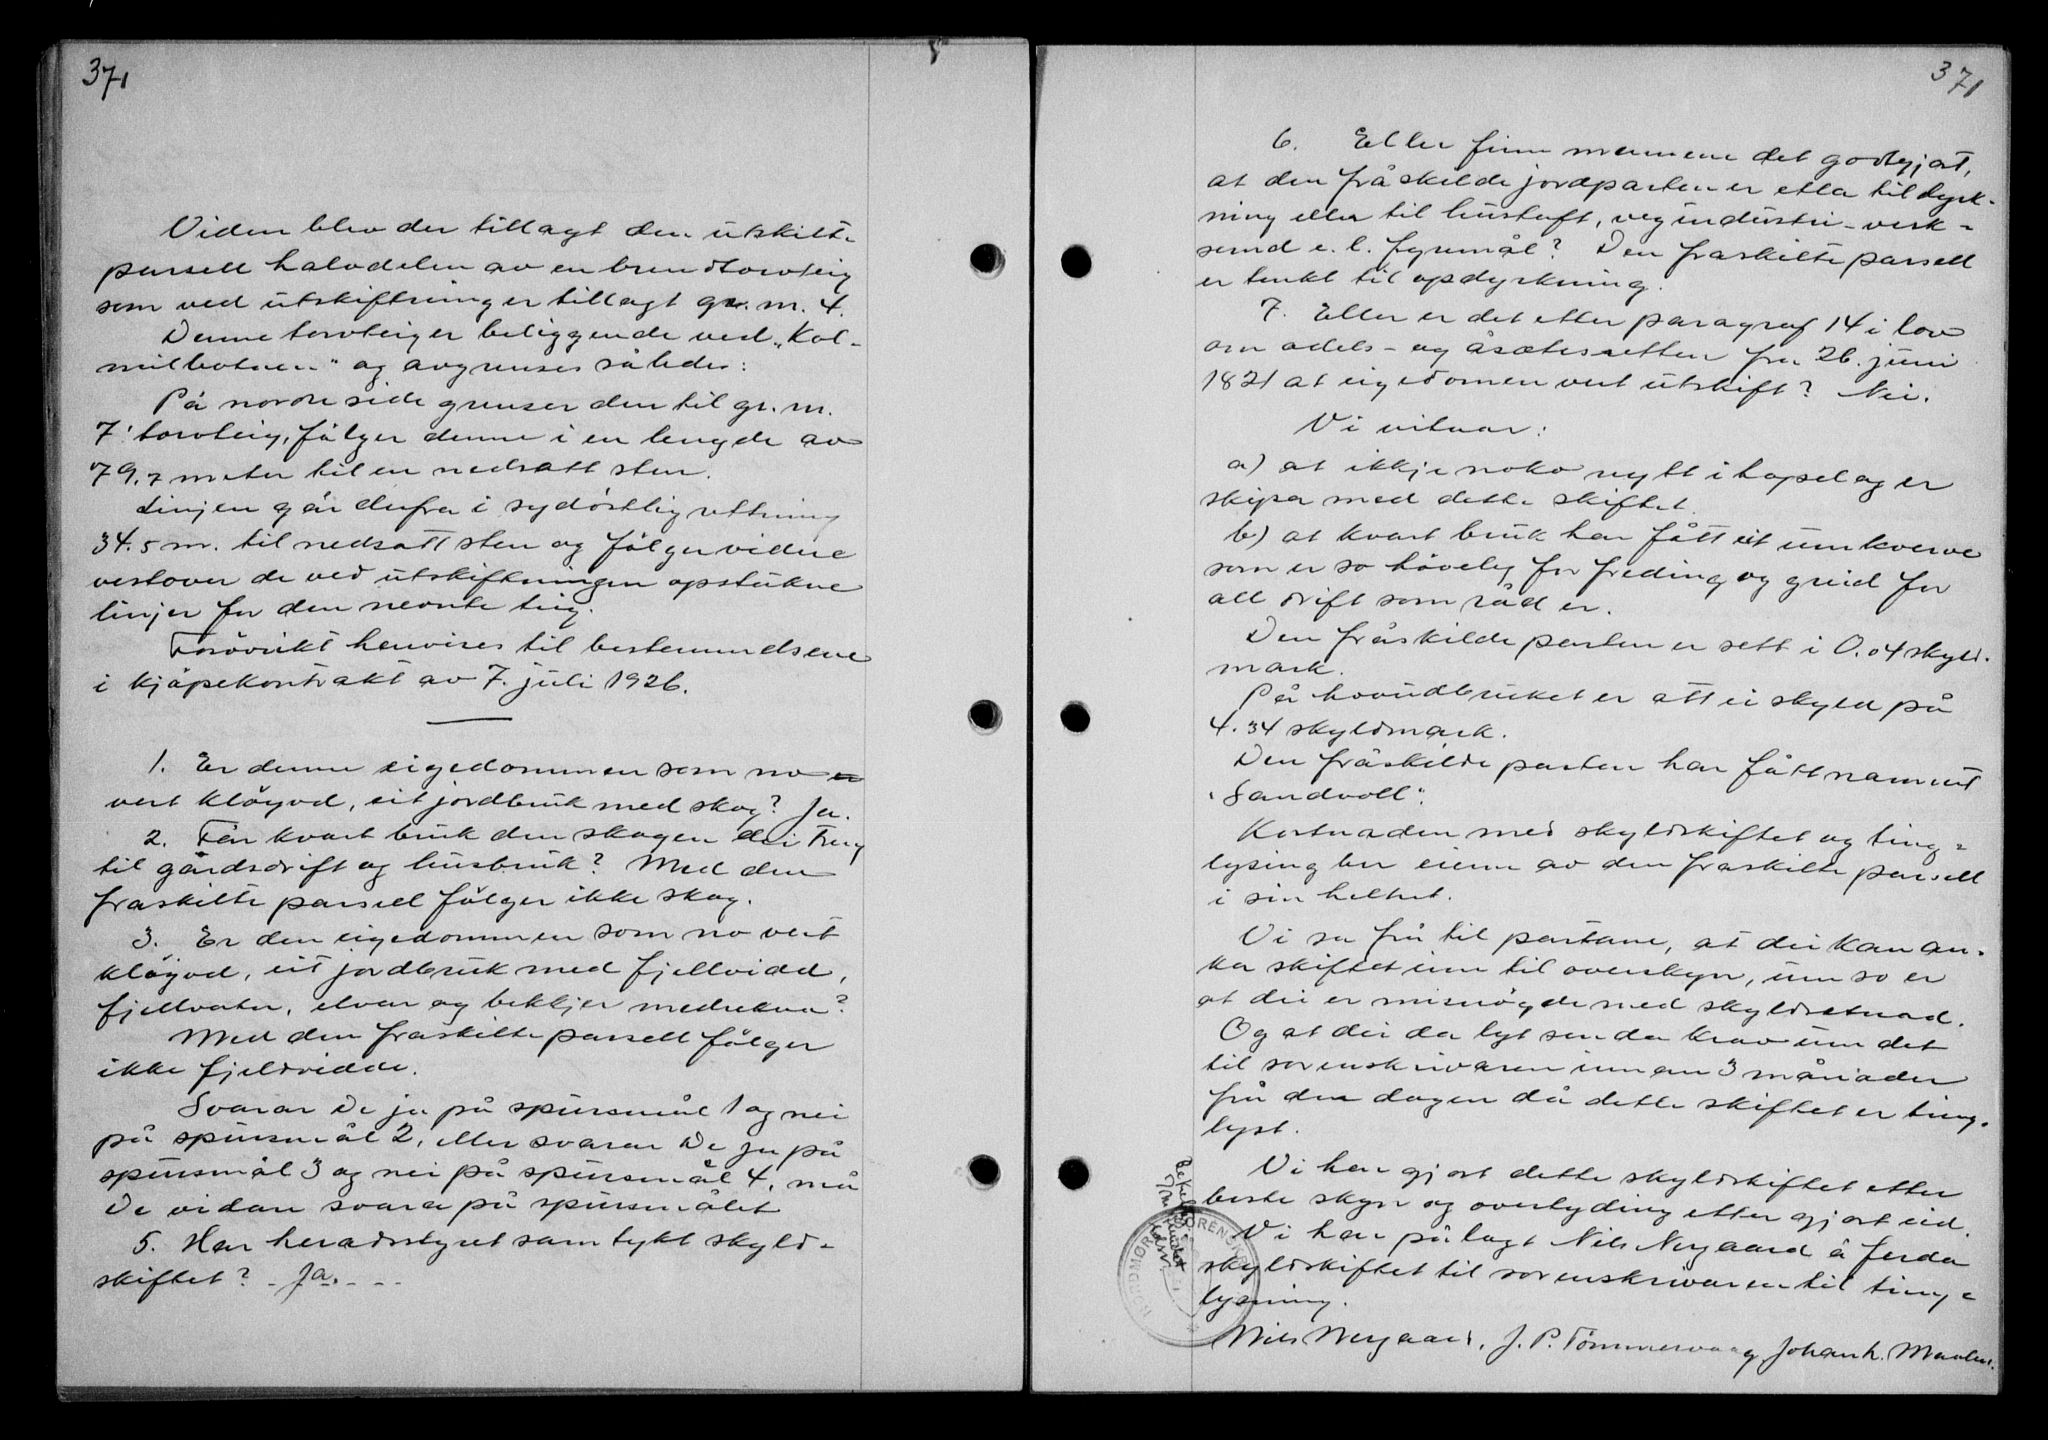 371
Viden blev der tillagt den utskilte
parsell halvdelen av en brendtorvteig
som ved utskiftning er tillagt gr. nr. 4.
Denne torvteig er beliggende ved „Kol-
milbotnen" og avgrenses således:
På nordre side grenser den til gr. nr.
7' torvteig, følger denne i en lengde av
79,7 meter til en nedsatt sten.
Linjen går derfra i sydøstlig rettning
34.5 m. til nedsatt sten og følger videre
vestover de ved utskiftningen opstukne
linjer for den nevnte teig.
Forøvrikt henvises til bestemmelsene
i kjøpekontrakt av 7. juli 1926.
1. Er denne eigedommen som no er
vert kløyvd, eit jordbruk med skog? Ja.
2. Fær kvart bruk den skogen dei treng
til gårdsdrift og husbruk? Med den
fraskilte parsell følger ikke skog.
3. Er den eigedommen som no vert
kløyvd, eit jordbruk med fjellvidd,
fjellvatn, elvar og bekkjer medrekna?
Med den fraskilte parsell følger
ikke fjellvidde.
Svarar De ja på spursmål 1 og nei
på spursmål 2, eller svarar De ja på
spursmål 3 og nei på spursmål 4, må
De vidare svara på spursmålet
5. Har heradsstyret samtykt skyld-
skiftet? - Ja. - - -
371
6. Eller finn mennene det godtgjort,
at den fråskilde jordparten er etla til dyrk-
ning eller til hustuft, veg industri-verk-
semd e. l. fyremål? Den fraskilte parsell
er tenkt til opdyrkning.
7. Eller er det etter paragraf 14 i lov
om odels- og åsætesretten fra 26. juni
1821 at eigedomen vert utskift? Nei.
Vi vitnar:
a) at ikkje noko nytt ihopelag er
skipa med dette skiftet.
b) at kvart bruk har fått eit umkverve
som er so høveleg for freding og greid for
all drift som råd er.
Den fråskilde parten er sett i 0.04 skyld-
mark.
På hovudbruket er att ei skyld på
4.34 skyldmark.
Den fråskilde parten har fått namnet
"Sandvoll".
Kostnaden med skyldskiftet og ting-
lysing ber eieren av den fraskilte parsell
i sin helhet.
Vi sa frå til partane, at dei kan an-
ka skiftet inn til overskyn, um so er
at dei er misnøgde med skyldsetnad.
Og at dei da lyt senda krav um det
til sorenskrivaren innan 3 månader
frå den dagen då dette skiftet er ting-
lyst.
Vi har gjort dette skyldskiftet etter
beste skyn og overtyding etter gjort eid.
Vi har pålagt Nils Nergaard å ferda
skyldskiftet til sorenskrivaren til ting-
lysning.
Nils Nergaard, J. P. Tømmervaag, Johan h.
NORDMØRE SORENSKR